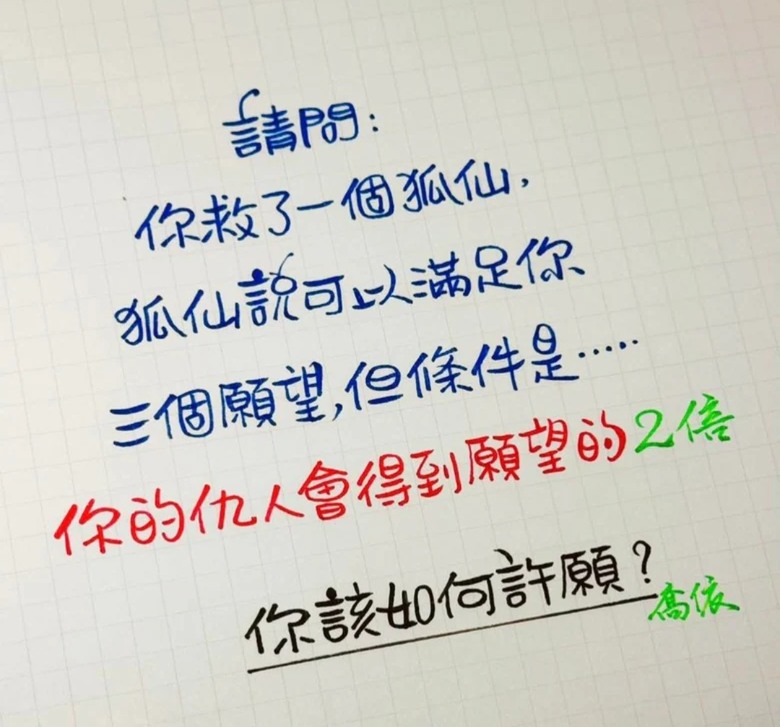 請問：
你救了一個狐仙，
狐仙說可以滿足你
三個願望，但條件是⋯⋯
你的仇人會得到願望的2倍
你該如何許願？
喬依